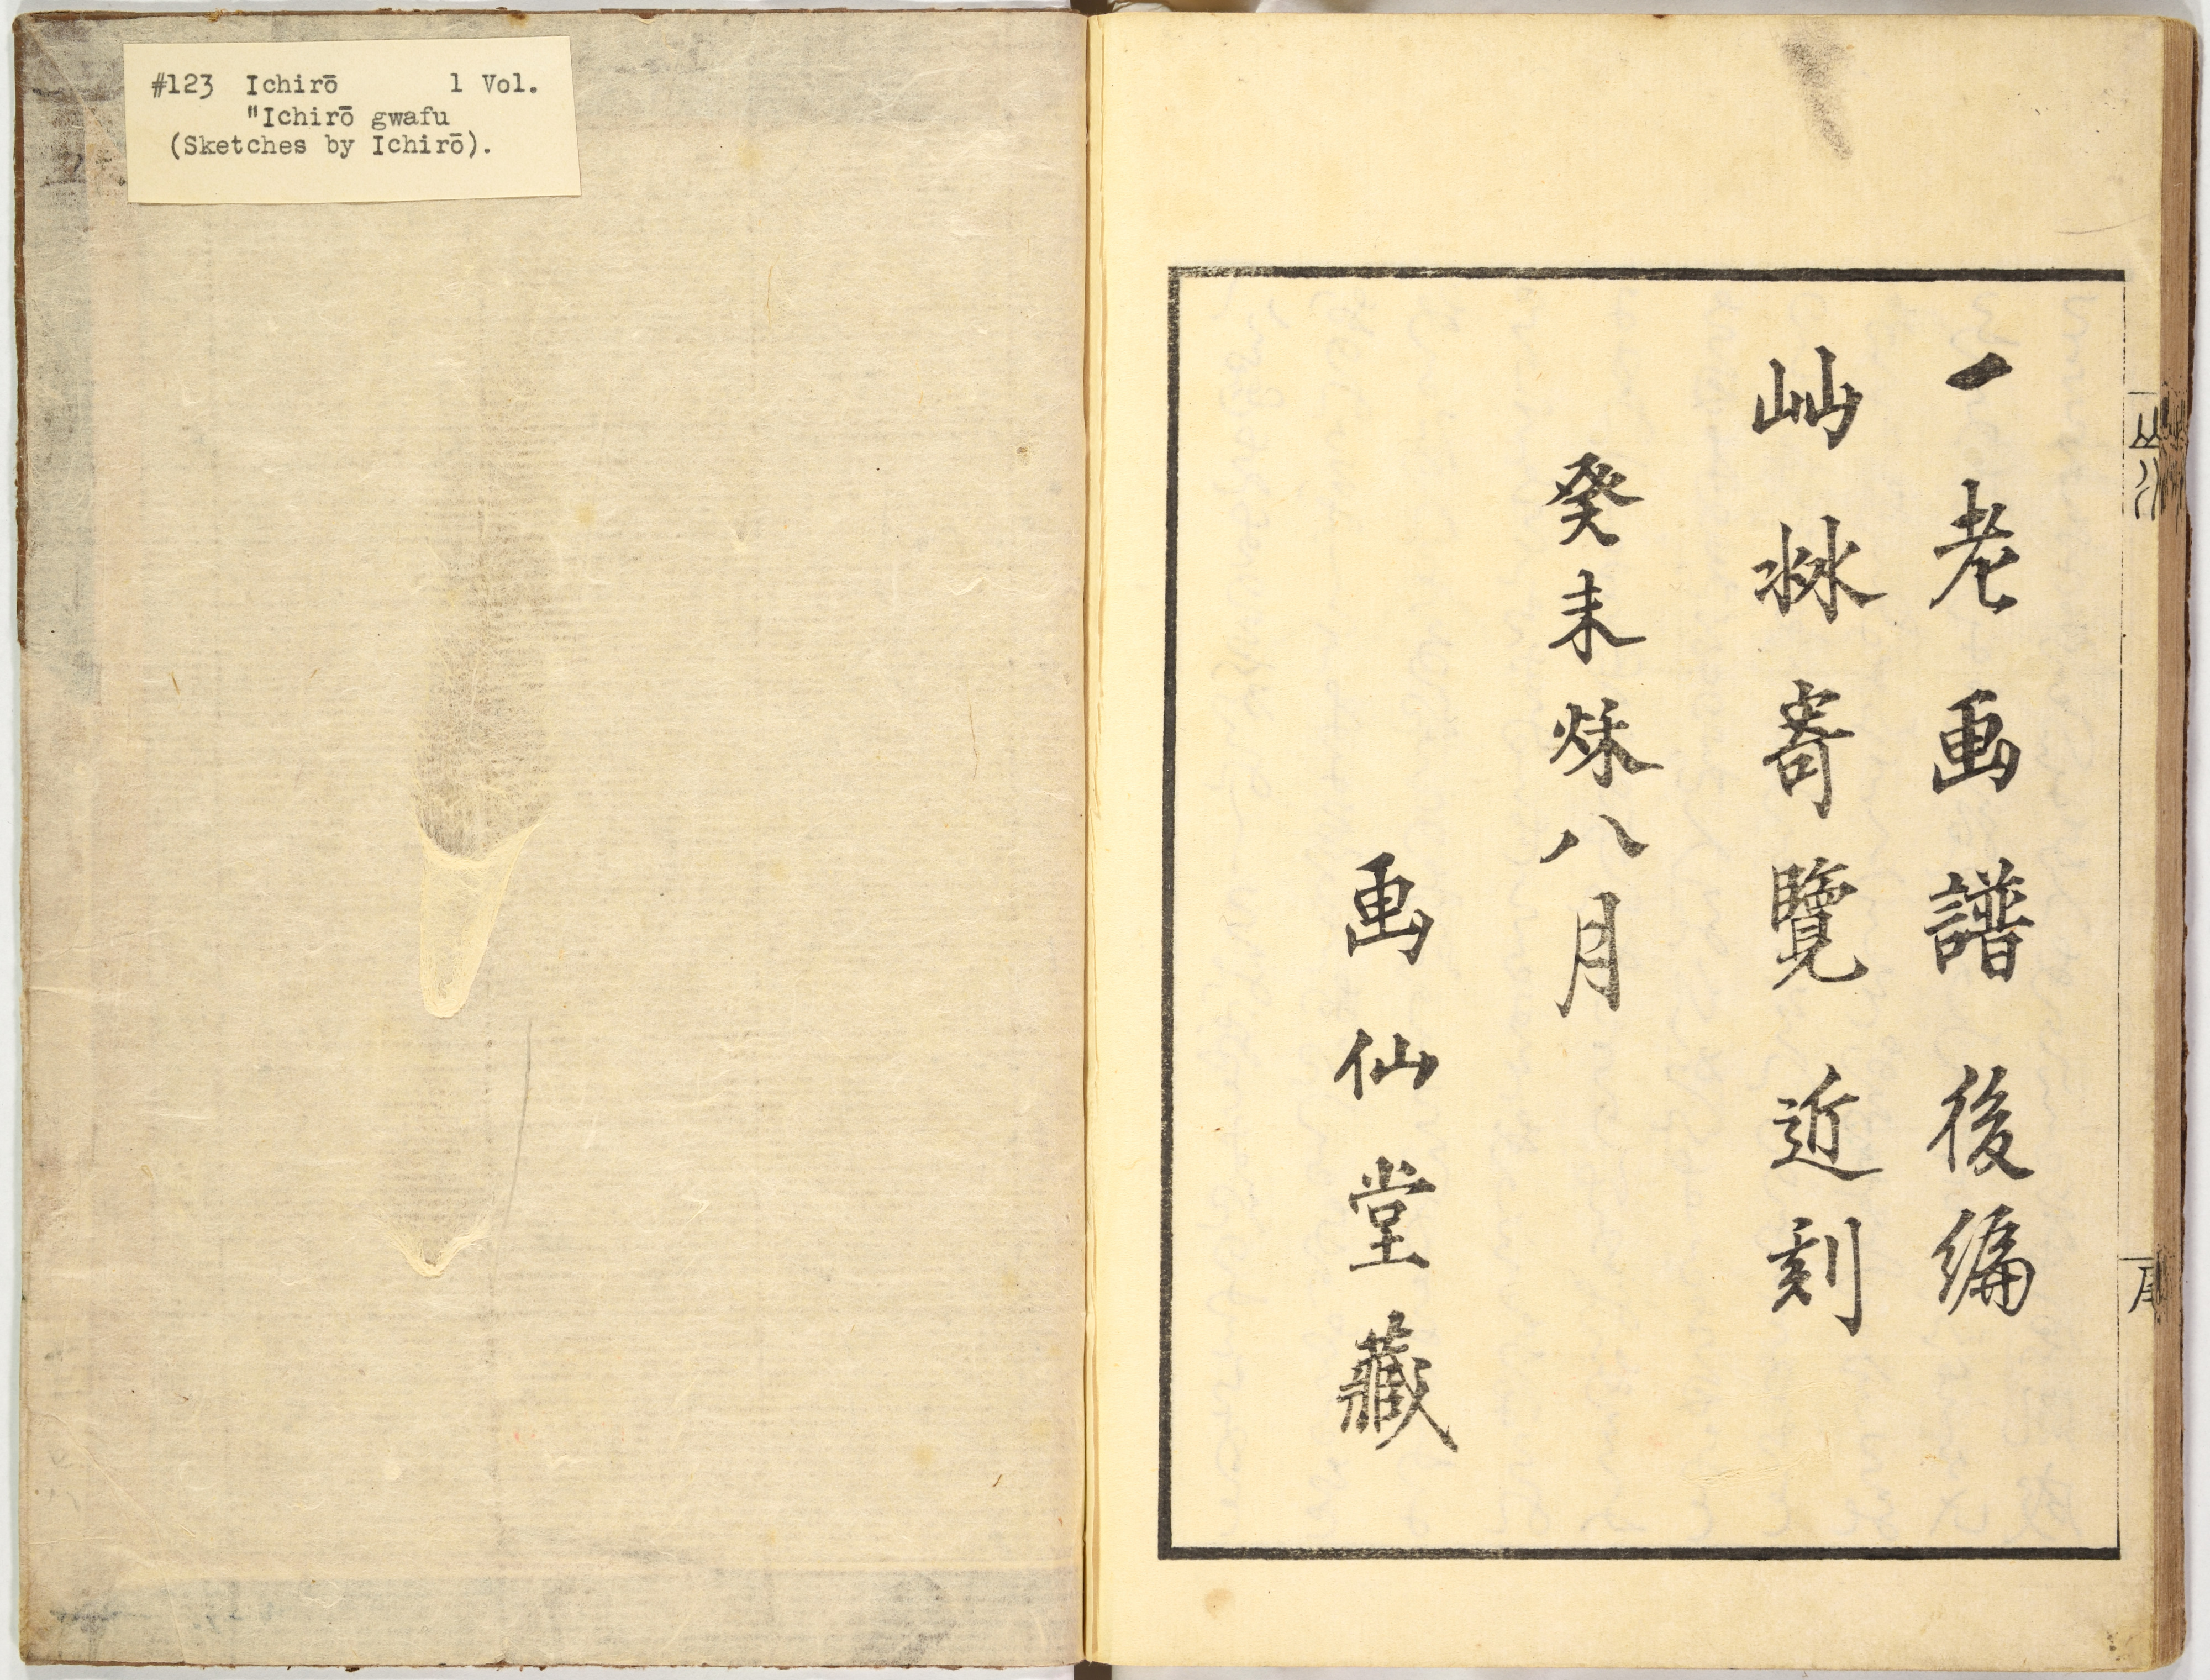 #123 Ichirō 1 Vol.
"Ichirō gwafu
(Sketches by Ichirō).
一老画譜後編
屾沝奇覽近刻
癸未秌八月
画仙堂藏